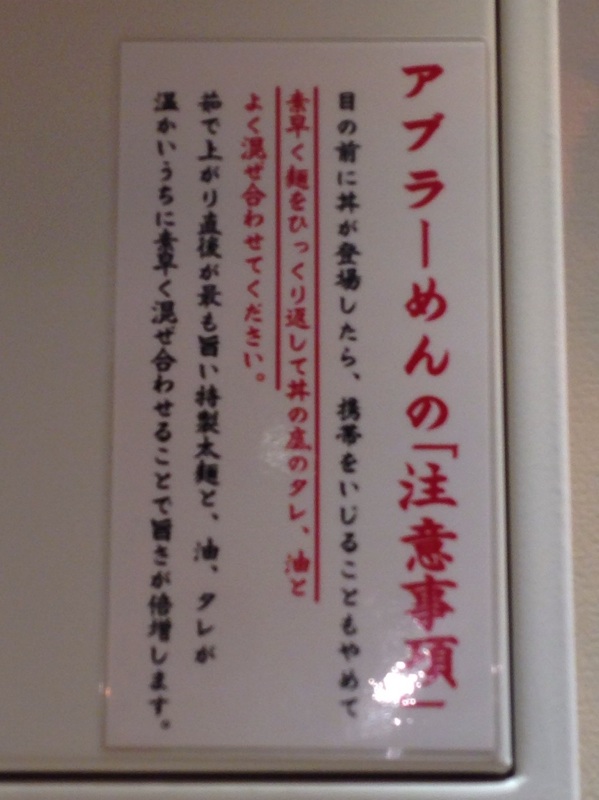 アブラーめんの「注意事項」
目の前に丼が登場したら、携帯をいじることもやめて
素早く麺をひっくり返して丼の底のタレ、油と
よく混ぜ合わせてください。
茹で上がり直後が最も旨い特製太麺と、油、タレが
温かいうちに素早く混ぜ合わせることで旨さが倍増します。